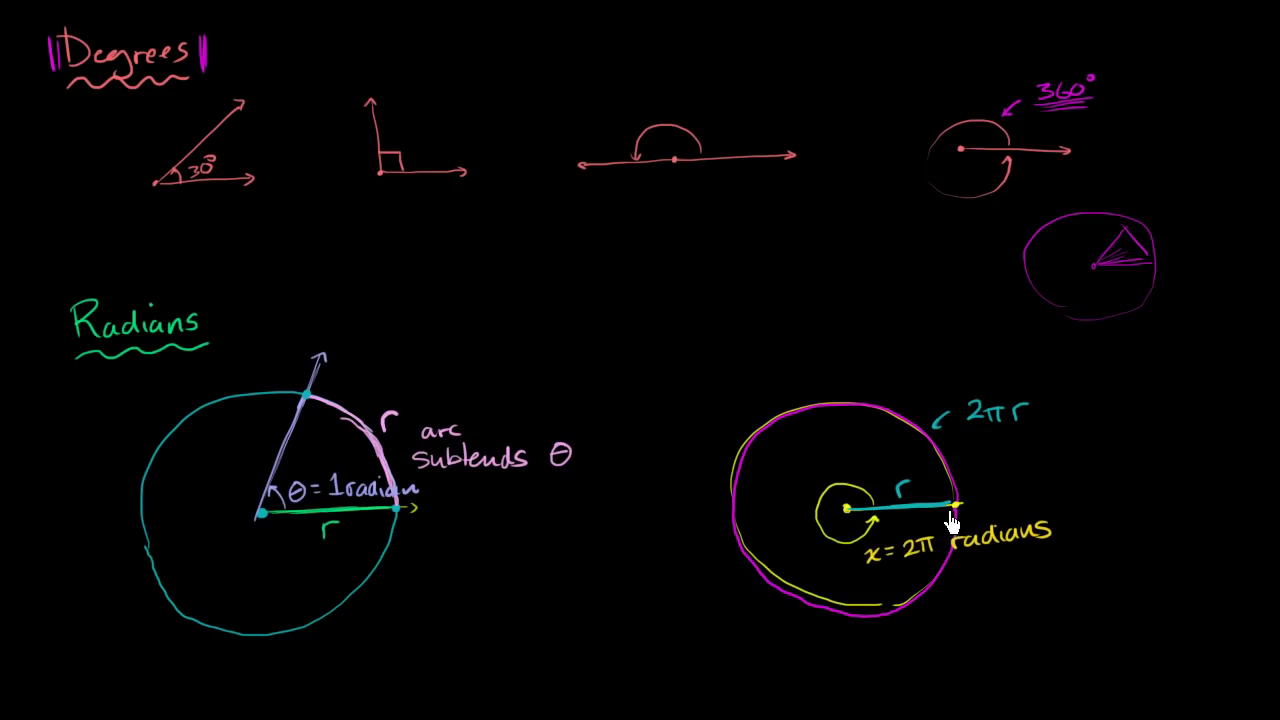 Degrees
30°
360°
Radians
r
arc
subtends θ
θ = 1 radian
r
2πr
r
x = 2π radians